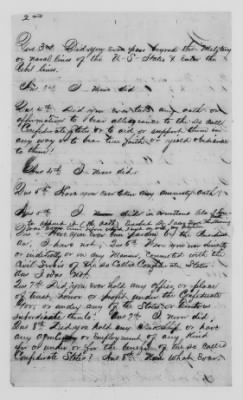 2nd
Ques 3rd Did you ever pass beyond the Military
or naval lines of the U-S States & enter the
Rebel lines.
Ans 3rd I Never did.
Ques 4th Did you ever take any oath or
affirmation to bear allegiance to the so called
Confederate States or to aid or support them in
any way or to bear true faith & yield obedience
to them?
Ans 4th I Never did.
Ques 5th Have you ever taken any Amnesty Oath?
Ans 5th I Never
Have you ever been pardoned by the President
Ans I have not. Ques 6th Were you ever directly
or indirectly or in any Manner, connected with the
Civil Service of the so called Confederate States.
Ans I was Not.
Ques 7th Did you ever hold any office, or place
of trust, honor or profit, under the Confederate
Gov, or under any of the States or Territories
subordinate thereto? Ans 7th I Never did.
Ques 8th Did you hold any Clerkship or have
any Agency or Employment of any Kind
for or under or for the benefit of the so called
Confederate States? Ans 8th None What Ever.